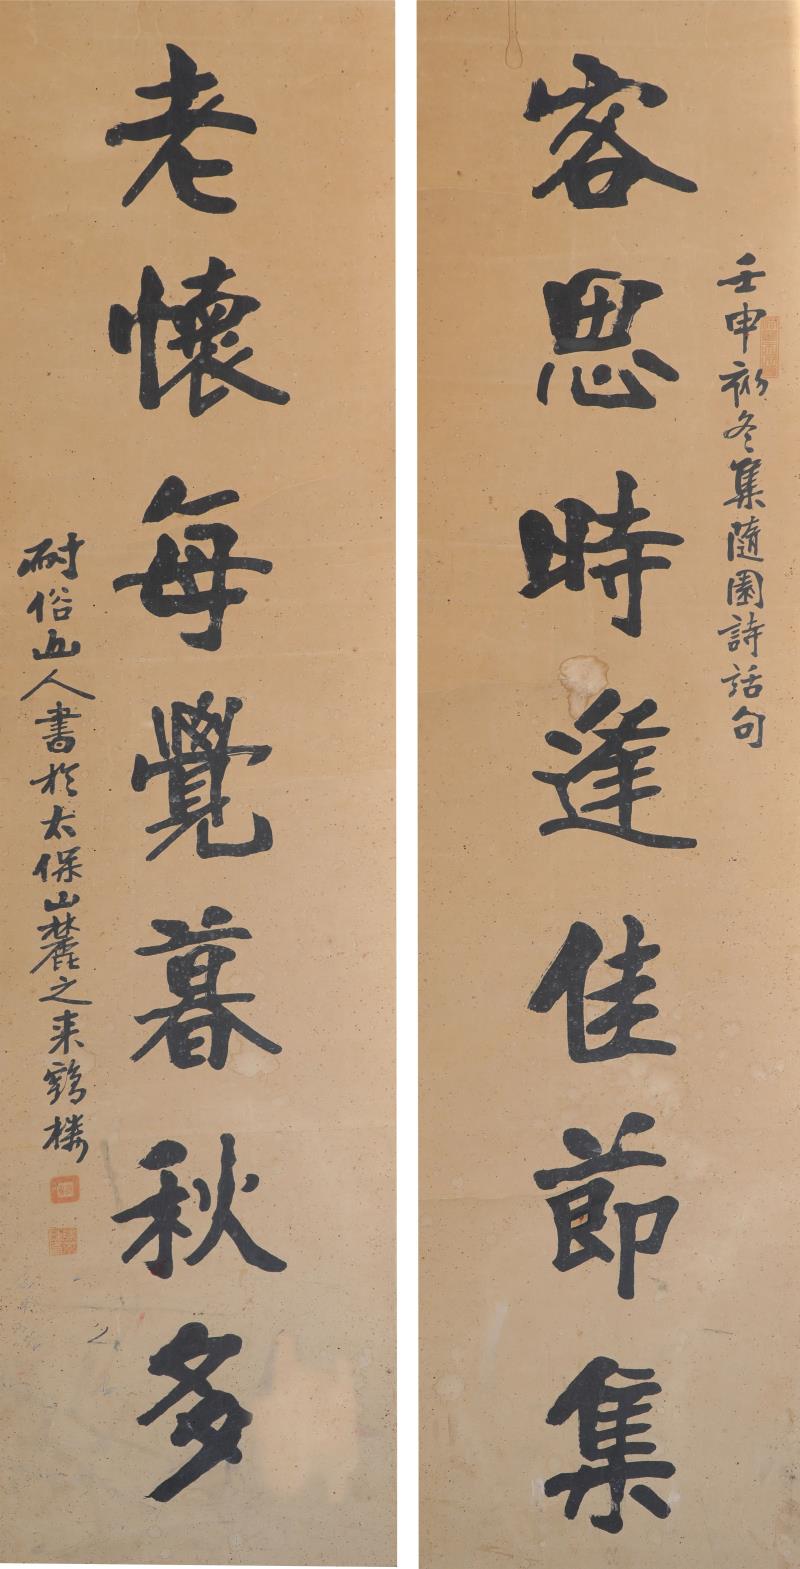 壬申初冬集隨園詩話句
客思時逢佳節集
老懷每覺暮秋多
耐俗山人書於太保山麓之来鶴樓